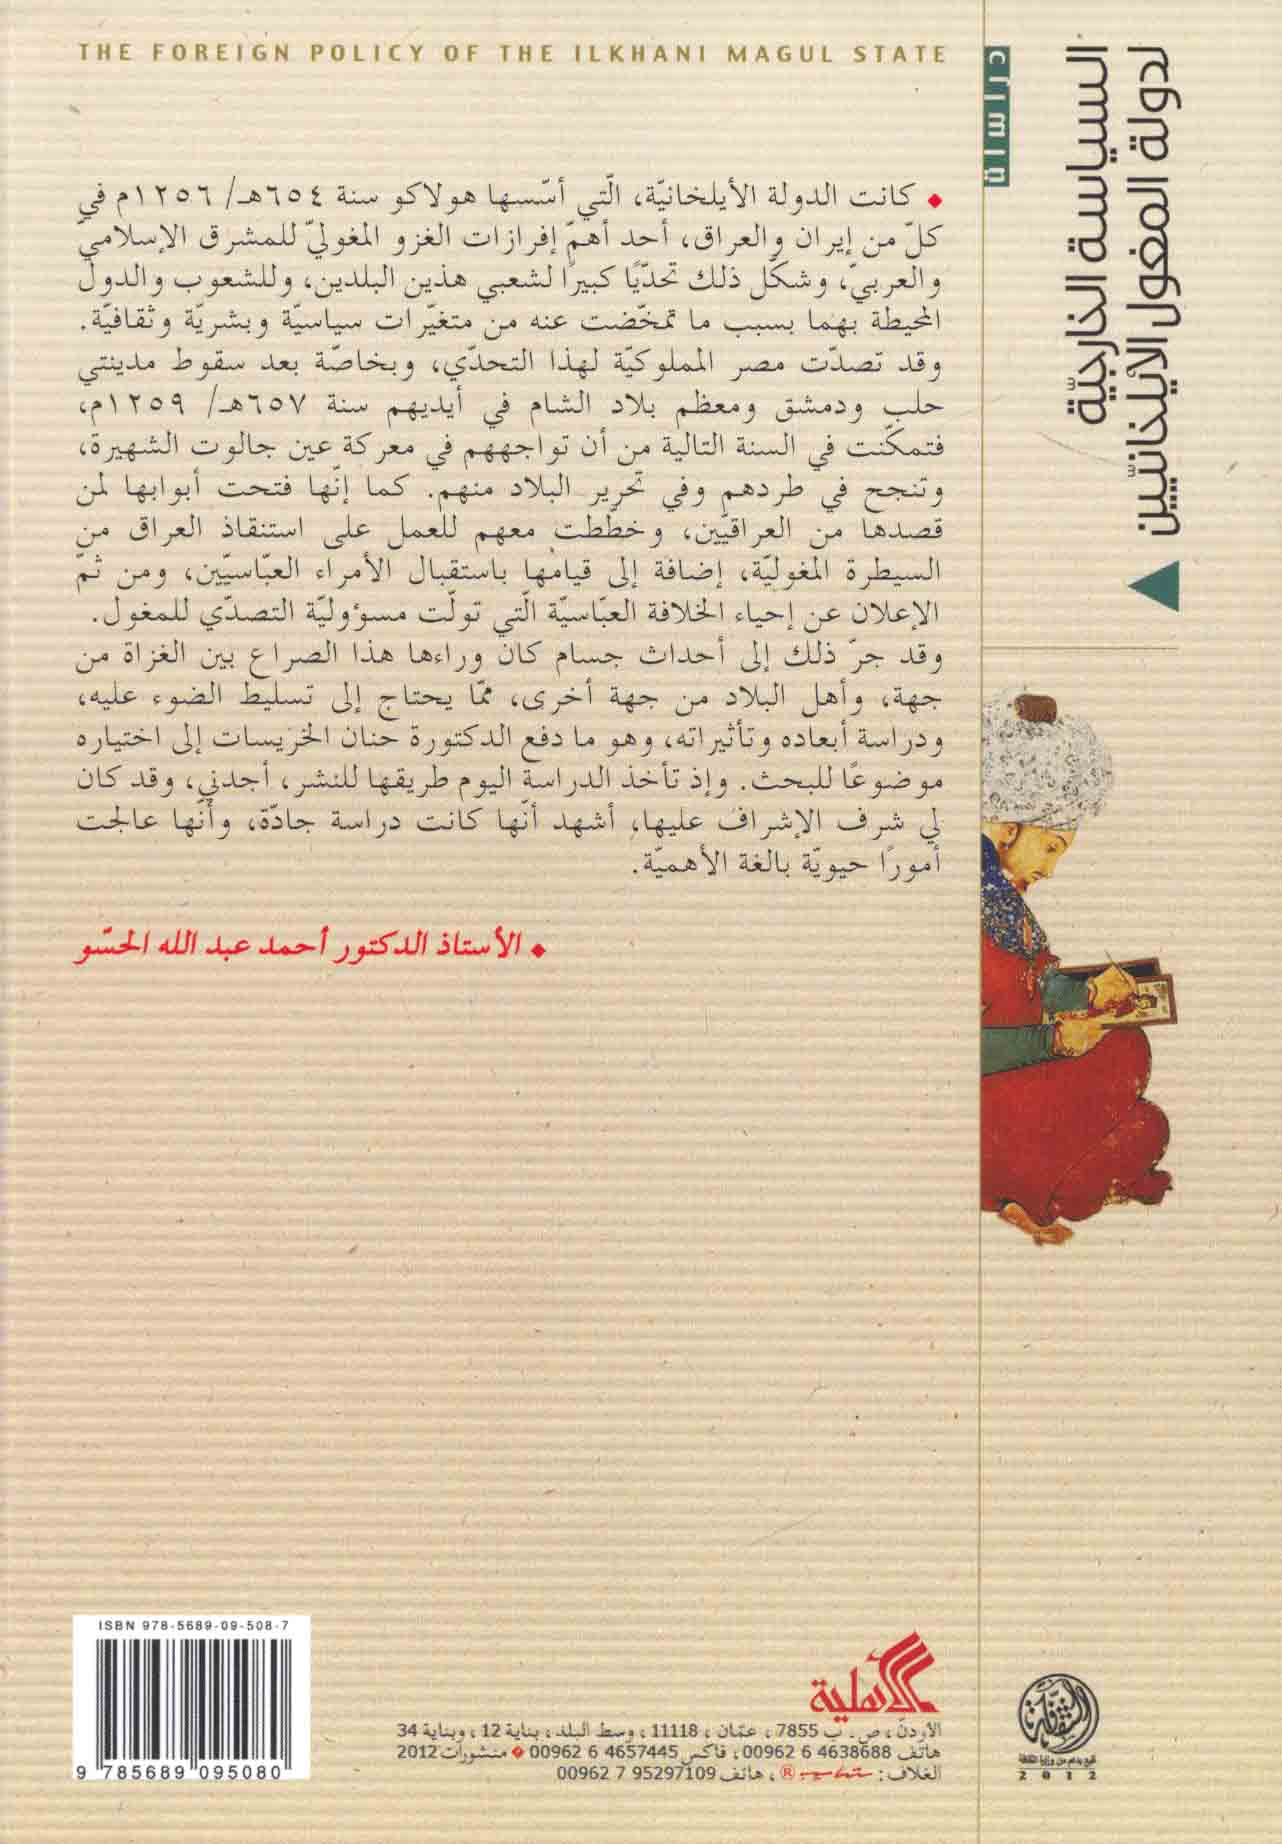 THE FOREIGN POLICY OF THE ILKHANI MAGUL STATE
السياسة الخارجيّة
لدولة المغول الأيلخانيّين
• كانت الدولة الأيلخانيّة، الّتي أسّسها هولاكو سنة ٦٥٤هـ/ ١٢٥٦م في
كلّ من إيران والعراق، أحد أهمّ إفرازات الغزو المغوليّ للمشرق الإسلاميّ
والعربيّ، وشكّل ذلك تحدّيًا كبيرًا لشعبي هذين البلدين، وللشعوب والدول
المحيطة بهما بسبب ما تمخّضت عنه من متغيّرات سياسيّة وبشريّة وثقافيّة.
وقد تصدّت مصر المملوكيّة لهذا التحدّي، وبخاصّة بعد سقوط مدينتي
حلب ودمشق ومعظم بلاد الشام في أيديهم سنة ٦٥٧هـ/ ١٢٥٩م،
فتمكّنت في السنة التالية من أن تواجههم في معركة عين جالوت الشهيرة،
وتنجح في طردهم وفي تحرير البلاد منهم. كما إنّها فتحت أبوابها لمن
قصدها من العراقيّين، وخطّطت معهم للعمل على استنقاذ العراق من
السيطرة المغوليّة، إضافة إلى قيامها باستقبال الأمراء العبّاسيّين، ومن ثمّ
الإعلان عن إحياء الخلافة العبّاسيّة الّتي تولّت مسؤوليّة التصدّي للمغول.
وقد جرّ ذلك إلى أحداث جسام كان وراءها هذا الصراع بين الغزاة من
جهة، وأهل البلاد من جهة أخرى، ممّا يحتاج إلى تسليط الضوء عليه،
ودراسة أبعاده وتأثيراته، وهو ما دفع الدكتورة حنان الخريسات إلى اختياره
موضوعًا للبحث. وإذ تأخذ الدراسة اليوم طريقها للنشر، أجدني، وقد كان
لي شرف الإشراف عليها، أشهد أنّها كانت دراسة جادّة، وأنّها عالجت
أمورًا حيويّة بالغة الأهميّة.
• الأستاذ الدكتور أحمد عبد الله الحسّو
ISBN 978-5689-09-508-7
9 785689 095080
الأهلية
الأردنّ، ص. ب 7855، عمّان، 11118، وسط البلد، بناية 12، وبناية 34
هاتف 00962 6 4638688، فاكس 00962 6 4657445 • منشورات 2012
الغلاف: ®، هاتف 00962 7 95297109
2012